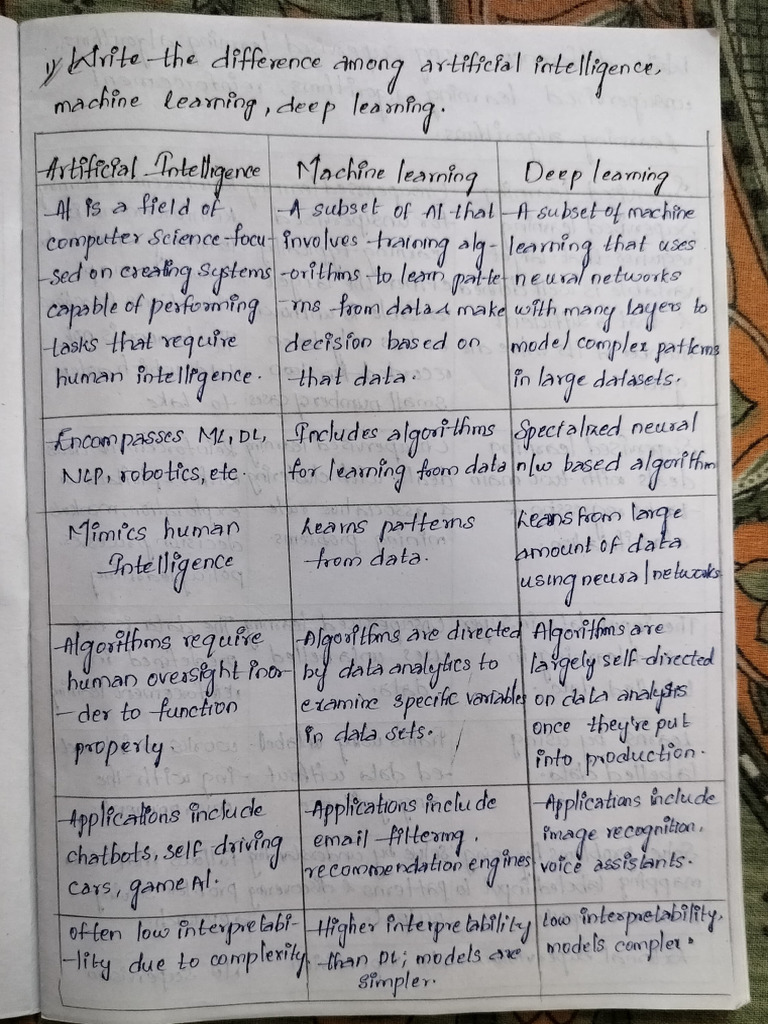 1) Write the difference among artificial intelligence,
machine learning, deep learning.
Artificial Intelligence
Machine learning
Deep learning
AI is a field of
computer science focu-
-sed on creating systems
capable of performing
tasks that require
human intelligence.
A subset of AI that
involves training alg-
-orithms to learn patte-
-rns from data & make
decision based on
that data.
A subset of machine
learning that uses
neural networks
with many layers to
model complex patterns
in large datasets.
Encompasses ML, DL,
NLP, robotics, etc.
Includes algorithms
for learning from data
Specialized neural
n/w based algorithm
Mimics human
Intelligence
Learns patterns
from data.
Leans from large
amount of data
using neural networks
Algorithms require
human oversight inor-
-der to function
properly.
Algorithms are directed
by data analytics to
examine specific variables
in data sets.
Algorithms are
largely self-directed
on data analysis
once they're put
into production.
Applications include
chatbots, self-driving
cars, game AI.
Applications include
email filtering,
recommendation engines
Applications include
image recognition,
voice assistants.
often low interpretabi-
-lity due to complexity
Higher interpretability
than DL; models are
simpler.
Low interpretability,
models complex.